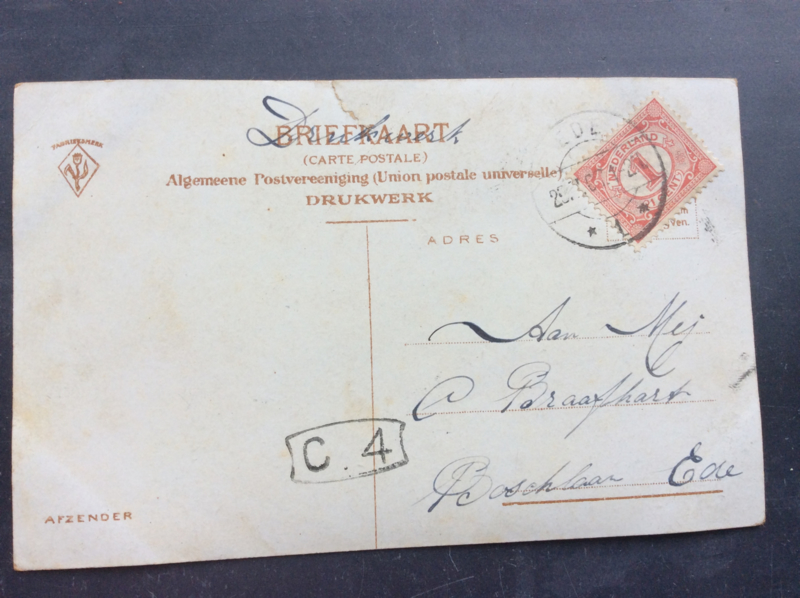 FABRIEKSMERK
Drukwerk
BRIEFKAART
(CARTE POSTALE)
Algemeene Postvereeniging (Union postale universelle)
DRUKWERK
EDE
1
NEDERLAND
1
CENT
ADRES
Aan Mej
C Braafhart
Boschlaan Ede
C. 4
AFZENDER